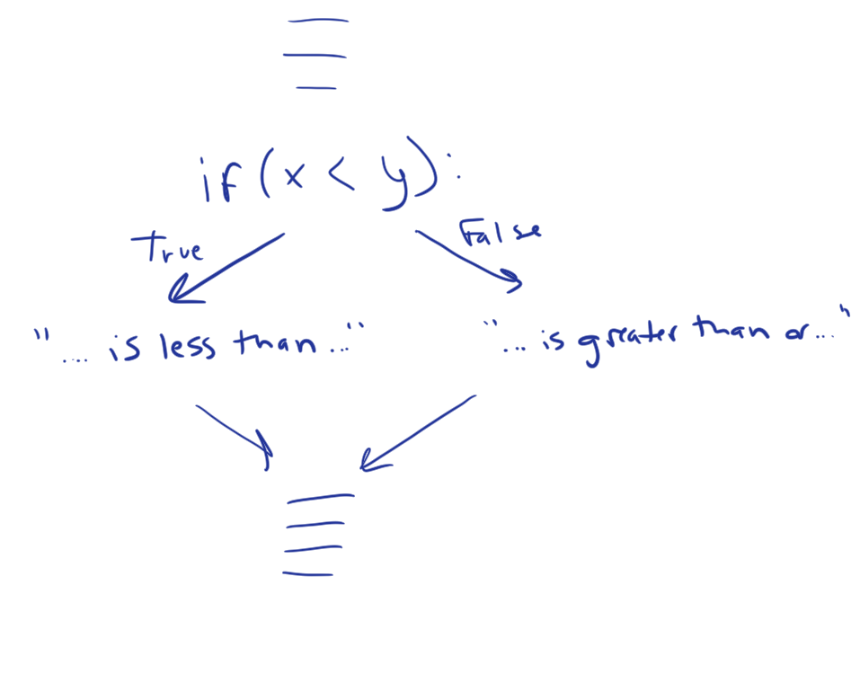 if (x < y):
True False
"... is less than ..." "... is greater than or ..."